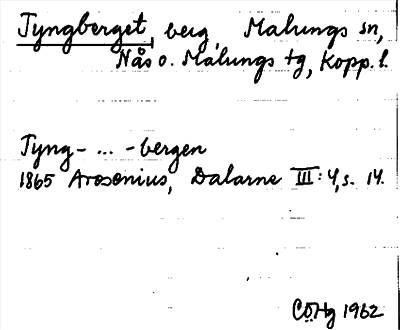 Tyngberget, berg, Malungs sn,
Nås o. Malungs tg, Kopp. l.
Tyng- ... -bergen
1865 Arosenius, Dalarne III: 4, s. 14.
CÖHg 1962